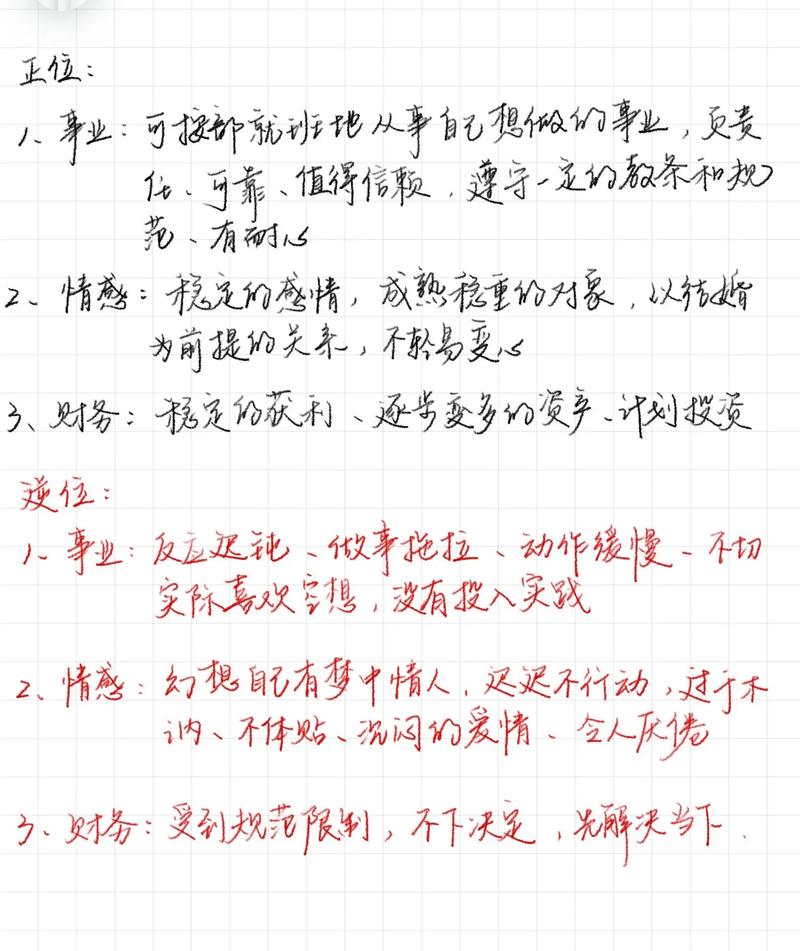 正位：
1、事业：可按部就班地从事自己想做的事业，负责
任、可靠、值得信赖，遵守一定的教条和规
范、有耐心
2、情感：稳定的感情，成熟稳重的对象，以结婚
为前提的关系，不轻易变心
3、财务：稳定的获利、逐步变多的资产、计划投资
逆位：
1、事业：反应迟钝、做事拖拉、动作缓慢、不切
实际喜欢空想，没有投入实践
2、情感：幻想自己有梦中情人，迟迟不行动，过于木
讷、不体贴、沉闷的爱情、令人厌倦
3、财务：受到规范限制，不下决定，先解决当下.